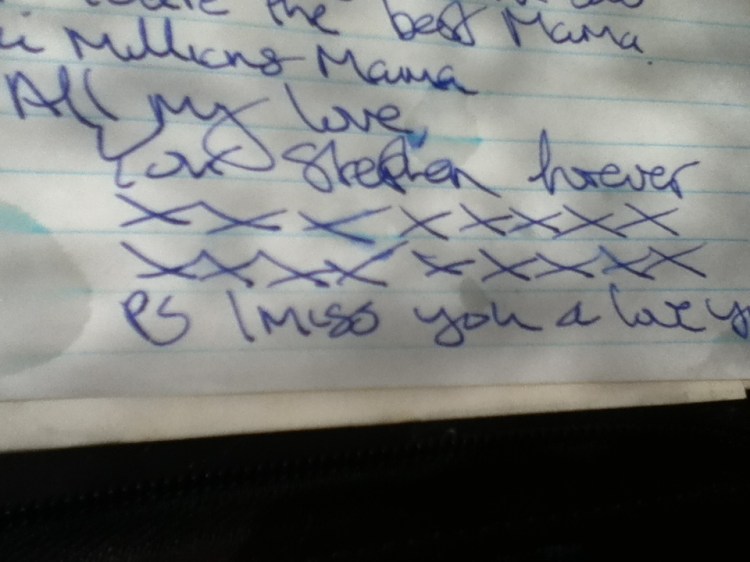 the best Mama
in Millions Mama
All my love,
Your Stephen forever
XXXXXXXX
XXXXXXXXX
PS I miss you & love y